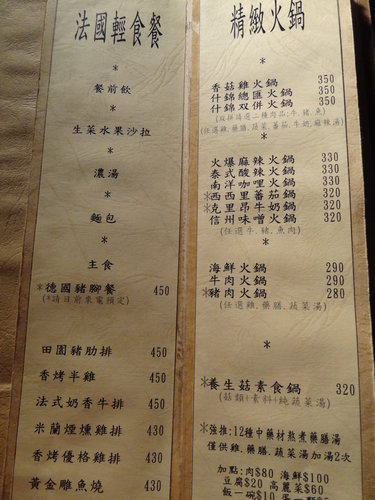 法國輕食餐
*
餐前飲
*
生菜水果沙拉
*
濃湯
*
麵包
*
主食
*德國豬腳餐 450
(*請日前來電預定)
田園豬肋排 450
香烤半雞 450
法式奶香牛排 450
米蘭煙燻雞排 430
香烤優格雞排 430
黃金雕魚燒 430
精緻火鍋
*
香菇雞火鍋 350
什錦總匯火鍋 350
什錦双併火鍋 350
(双拼請選二種肉品:牛.豬.魚)
(任選雞.藥膳.蔬菜.蕃茄.牛奶.麻辣湯)
*
火爆麻辣火鍋 330
泰式酸辣火鍋 330
南洋咖哩火鍋 330
*西西里蕃茄鍋 320
*克里昂牛奶鍋 320
信州味噌火鍋 320
(任選牛.豬.魚肉)
*
海鮮火鍋 290
牛肉火鍋 290
*豬肉火鍋 280
(任選雞.藥膳.蔬菜湯)
*
*養生菇素食鍋 320
(菇類+素料+純蔬菜湯)
*強推:12種中藥材熬煮藥膳湯
僅供雞.藥膳.蔬菜湯加湯2次
加點:肉$80 海鮮$100
豆腐$20 高麗菜$60
飯一碗$10